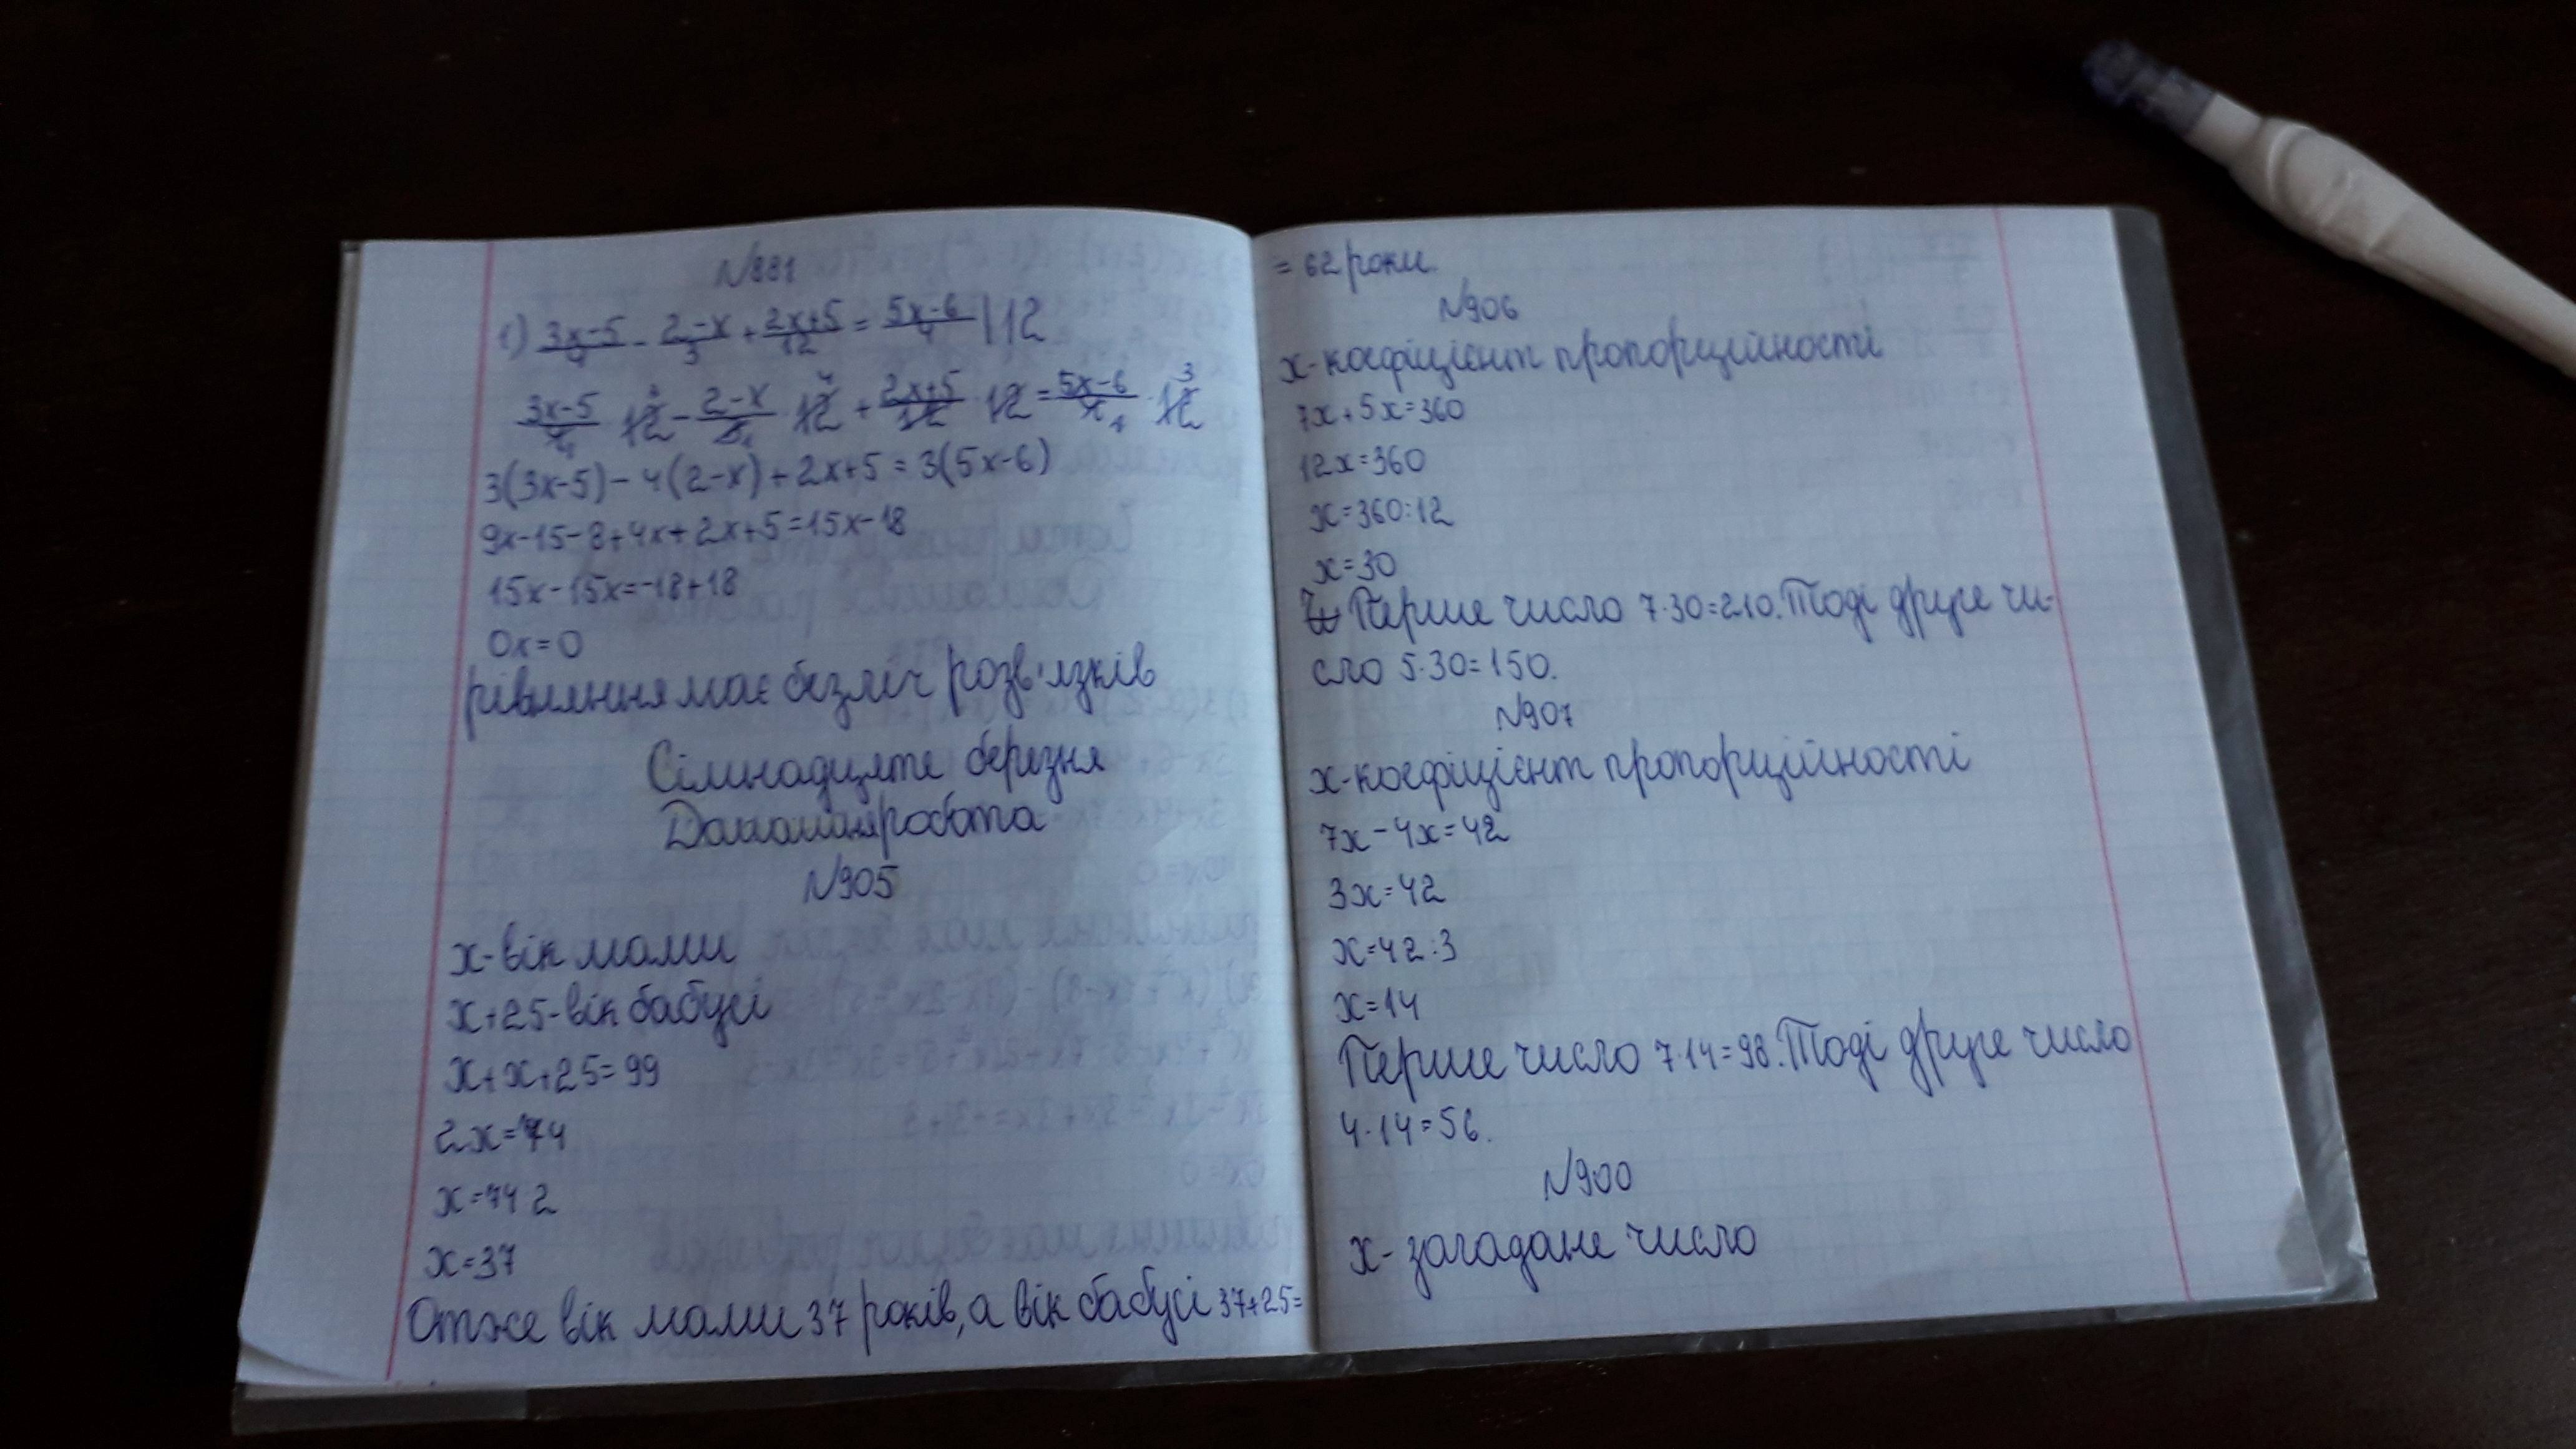 №881
1) 3x-5/4 - 2-x/3 + 2x+5/12 = 5x-6/4 |12
3x-5/4 1 · 12 3 - 2-x/3 1 · 12 4 + 2x+5/12 · 12 = 5x-6/4 1 · 12 3
3(3x-5)-4(2-x)+2x+5=3(5x-6)
9x-15-8+4x+2x+5=15x-18
15x-15x=-18+18
0x=0
рівняння має безліч розв'язків
Сімнадцяте березня
Домашня робота
№905
x-вік мами
x+25-вік бабусі
x+x+25=99
2x=74
x=74 2
x=37
Отже вік мами 37 років, а вік бабусі 37+25=
= 62 роки.
№906
x-коефіцієнт пропорційності
7x+5x=360
12x=360
x=360:12
x=30
Перше число 7·30=210. Тоді друге чи-
сло 5·30=150.
№907
x-коефіцієнт пропорційності
7x-4x=42
3x=42
x=42:3
x=14
Перше число 7·14=98. Тоді друге число
4·14=56.
№900
x- загадане число